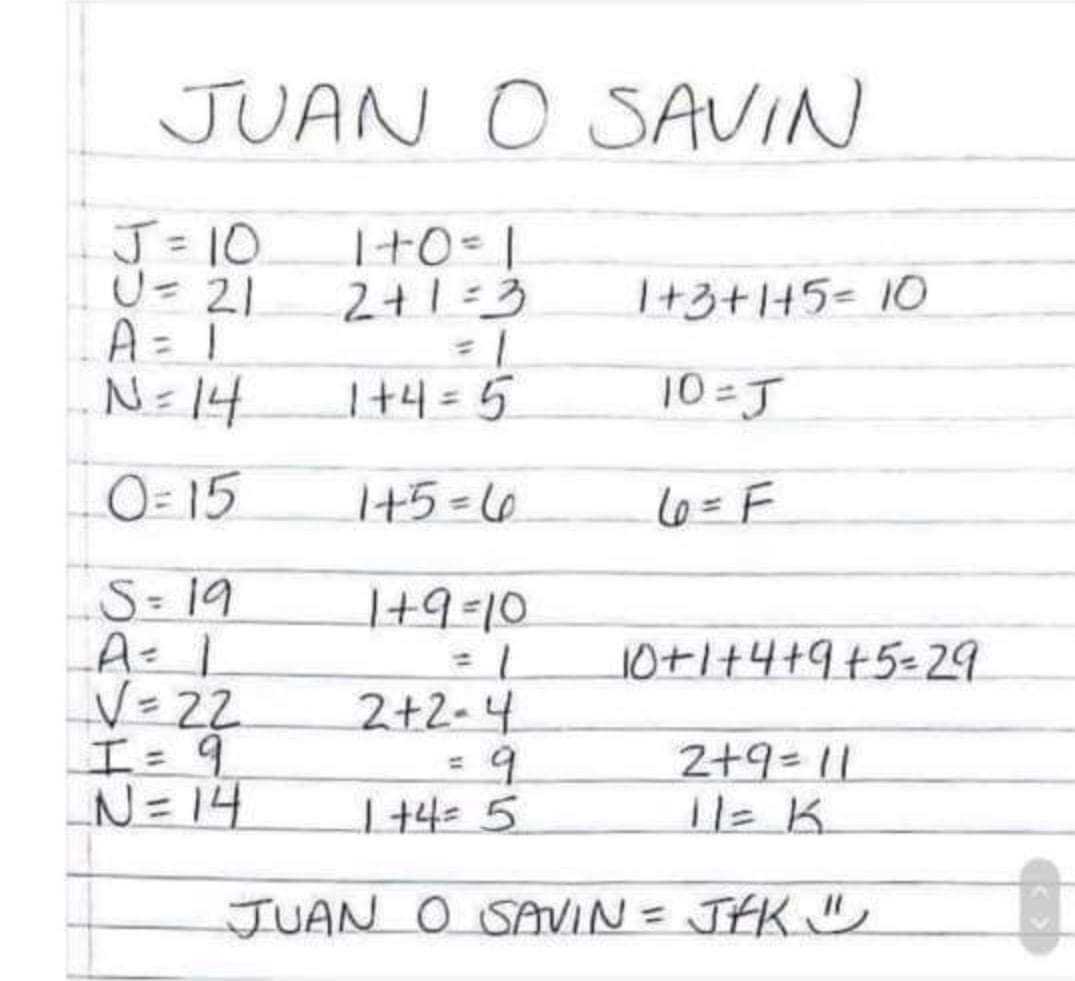 JUAN O SAVIN
J = 10 1+0=1
U = 21 2+1=3 1+3+1+5= 10
A = 1 =1
N = 14 1+4=5 10=J
O=15 1+5=6 6=F
S= 19 1+9=10
A= 1 = 1 10+1+4+9+5=29
V= 22 2+2=4
I = 9 = 9 2+9=11
N= 14 1+4= 5 11= K
JUAN O SAVIN = JFK